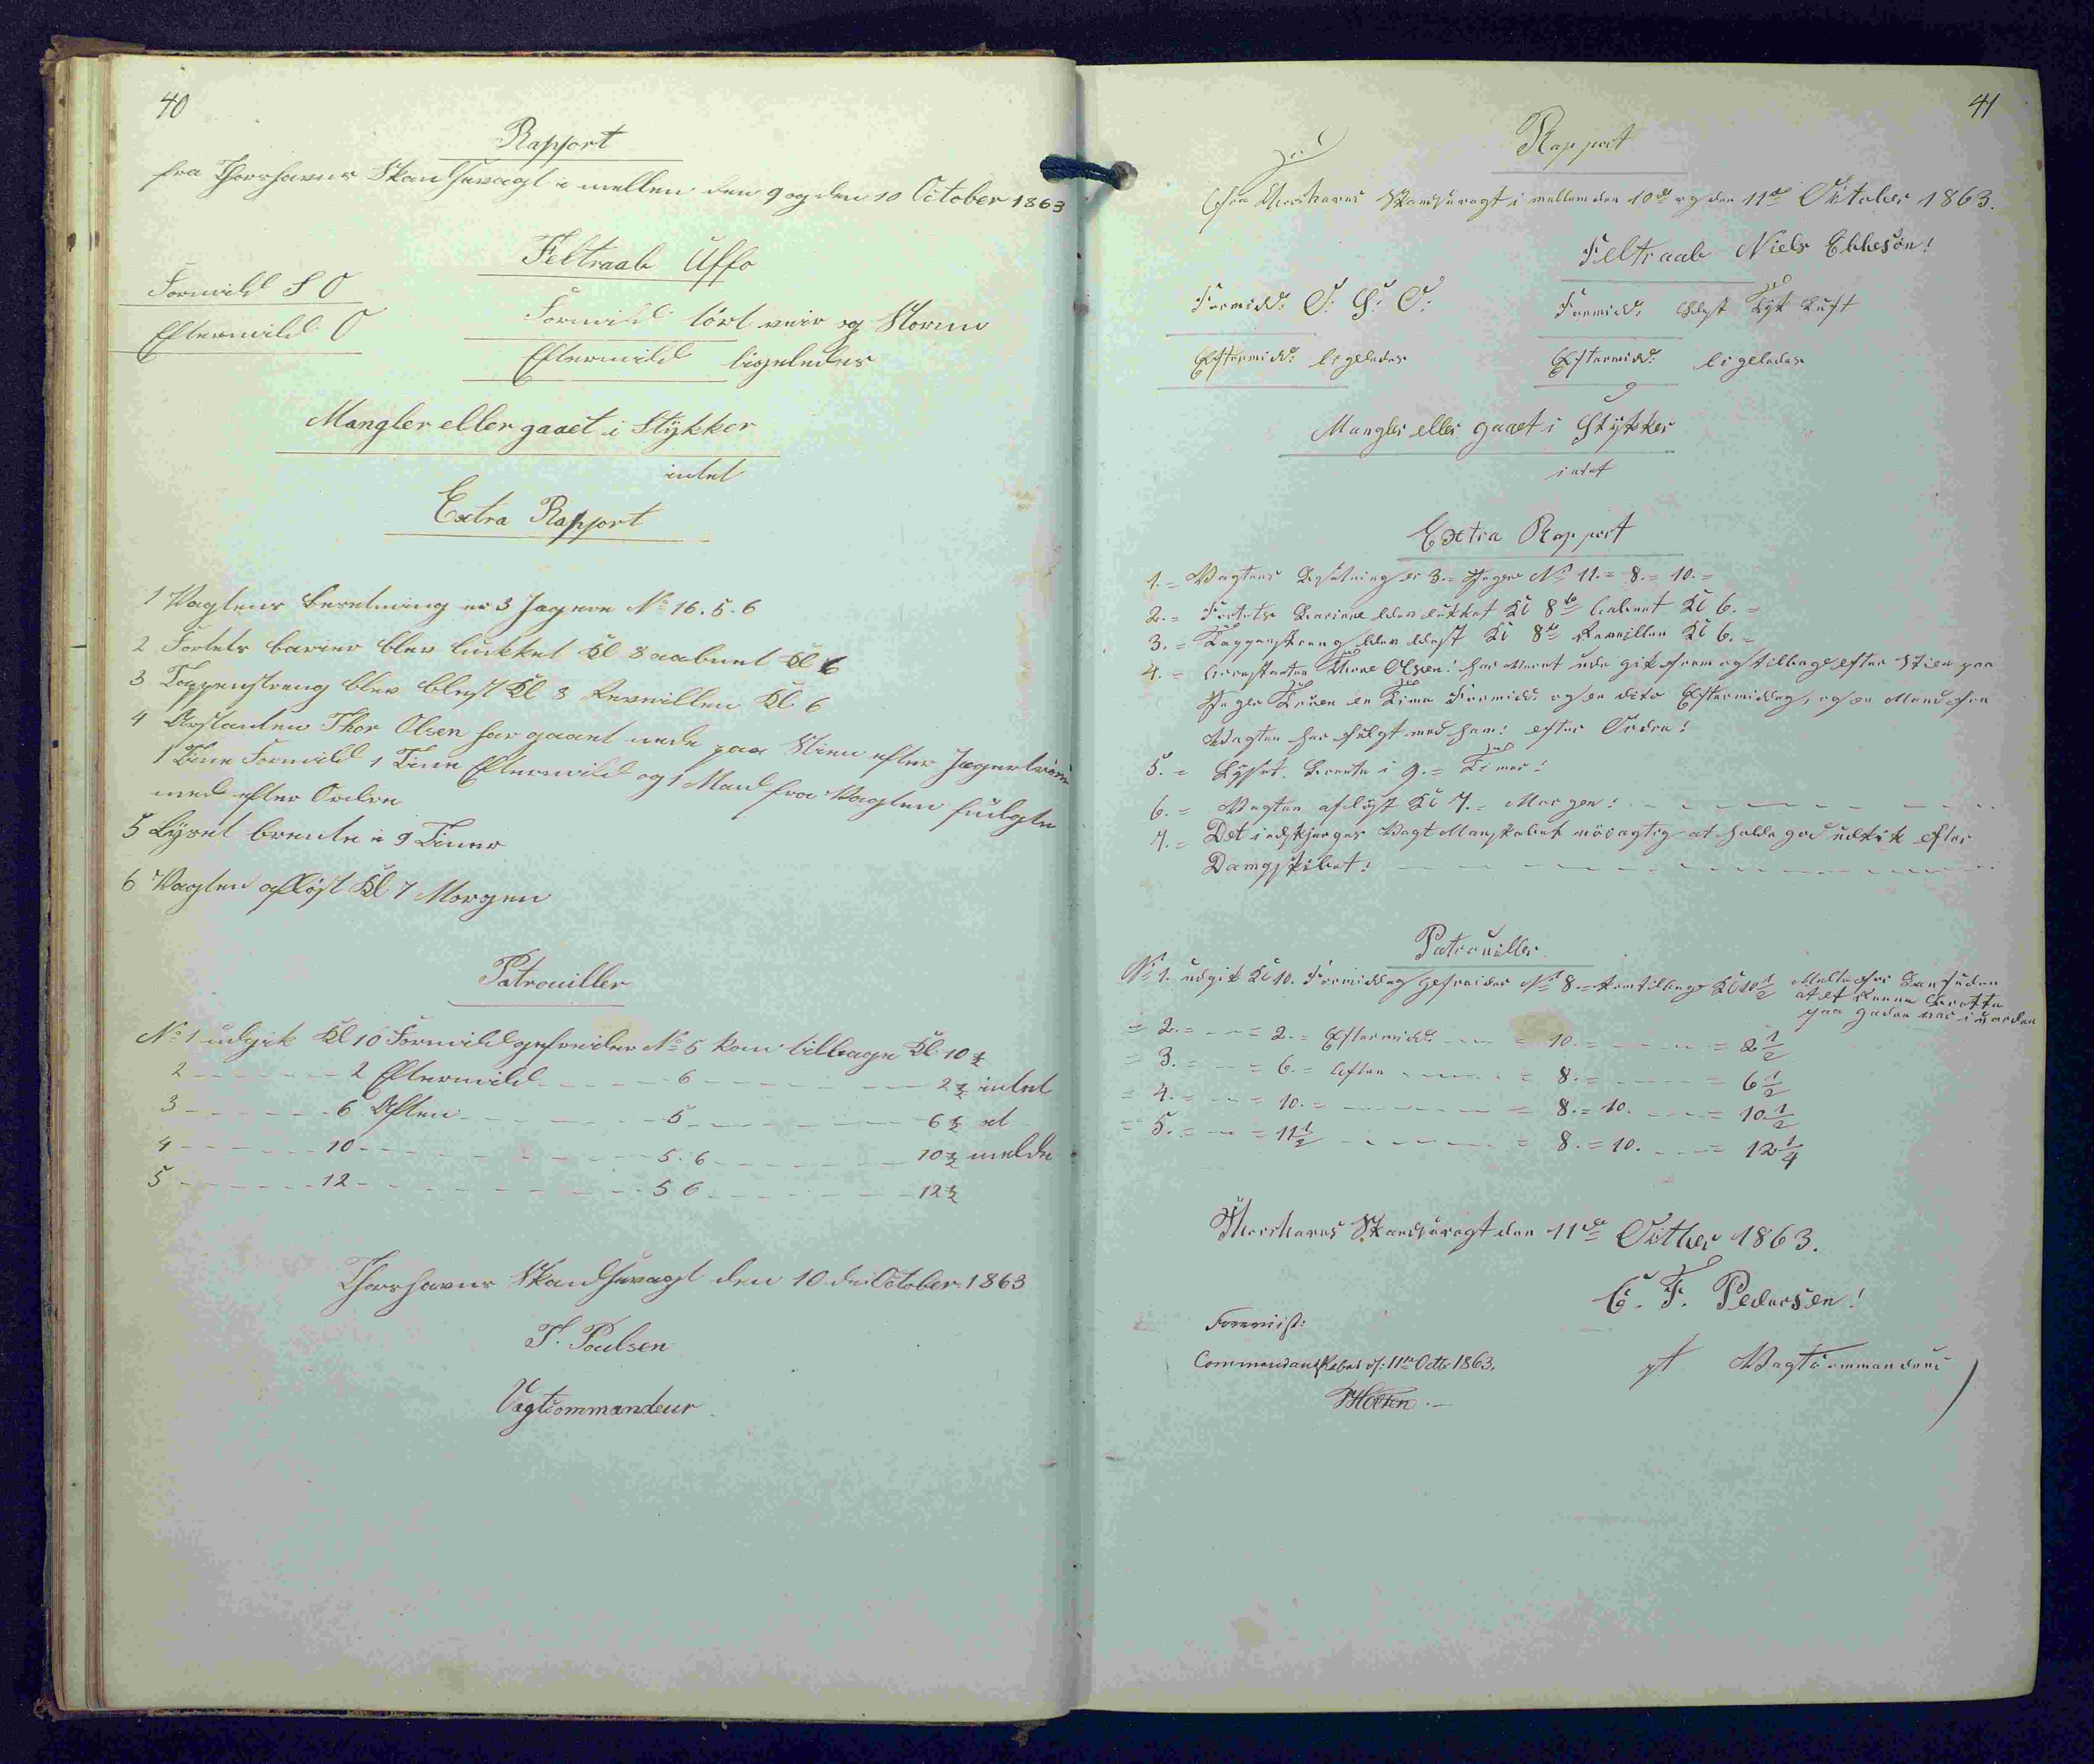 40
Rapport
fra Thorshavns Skandsevagt i mellem den 9 og den 10 October 1863
Feltraab Uffo
Formidd S O
Eftermidd O
Formidd tört veir og Storm
Eftermidd ligeledes
Mangler eller gaaet i Stÿkker
intet
Extra Rapport
1 Vagtens besetning er 3 Jægere No 16. 5. 6
2 Fortets barier blev lukket Kl 8 aabnet Kl 6
3 Tappenstreng blev blest Kl 8 Reveillen Kl 6
4 Arstanten Thor Olsen har gaaet nede paa Stien efter Jægertröne
1 Time Formidd 1 Time Eftermidd og 1 Mand fra Vagten fulgte
med efter Ordre
5 Lÿset brente i 9 Timer
6 Vagten aflöst Kl 7 Morgen
Patrouiller
No 1 udgik Kl 10 Formidd gefreider No 5 kom tilbage Kl 10 ½
2 - - - 2 Eftermidd - - - 6 - - - 2 ½ intet
3 - - - 6 Aften - - - 5 - - - 6 ½ at
4 - - - 10 - - - 5. 6 - - - 10 ½ melde
5 - - - 12 - - - 5 6 - - - 12 ½
Thorshavns Skandsevagt den 10 de October 1863
T. Poulsen
Vagtcommandeur
41
Rapport
fra Thorshavns Skandsvagt i mellem den 10de og den 11te October 1863.
Feltraab Niels Ebbesön!
Formidd: O. S. O.
Formidd: Blest Tÿk Luft
Eftermidd: ligeledes
Eftermidd: ligeledes
Mangler eller gaaet i Stÿkker
intet
Extra Rapport
1. = Vagtens Besetning er 3. = Jæger No 11. = 8. = 10. =
2. = Fortets Bariere blev lukket Kl 8te aabnet Kl 6. =
3. = Tappenstreng blev blest Kl 8te Reveillen Kl 6. =
4. = Arrestanten Thore Olsen! har veret ude gik frem og tilbage efter Stien paa
Jæger en Time Formidd: og en dito Eftermiddag, og en Mand fra
Vagten har fulgt med ham: efter Ordre!
5. = Lÿset. Brente i 9. = Timer!
6. = Vagten aflöst Kl 7. = Morgen!
7. = Det indskjerpes Vagt Mandskabet nöiagtig at holde god udkik efter
Dampskibet!
Patrouiller
No 1. udgik Kl 10. Formiddag gefreider No 8. = kom tilbage Kl 10 ½ Meldte
at et
paa gaden var i uorden
= 2. = - = 2. = Eftermidd: - - = 10. = - - = 2 ½
= 3. = - = 6. = Aften - - = 8. = - - = 6 ½
= 4. = - = 10. = - - = 8. = 10. - - = 10 ½
= 5. = - = 11 ½ - - = 8. = 10. - - = 12 ¼
Thorshavns Skandsvagt den 11te Octber 1863.
C. F. Pedersen!
Foreviist:
Commandantskabet d: 11te Octbr 1863.
pt Vagtcommandeur